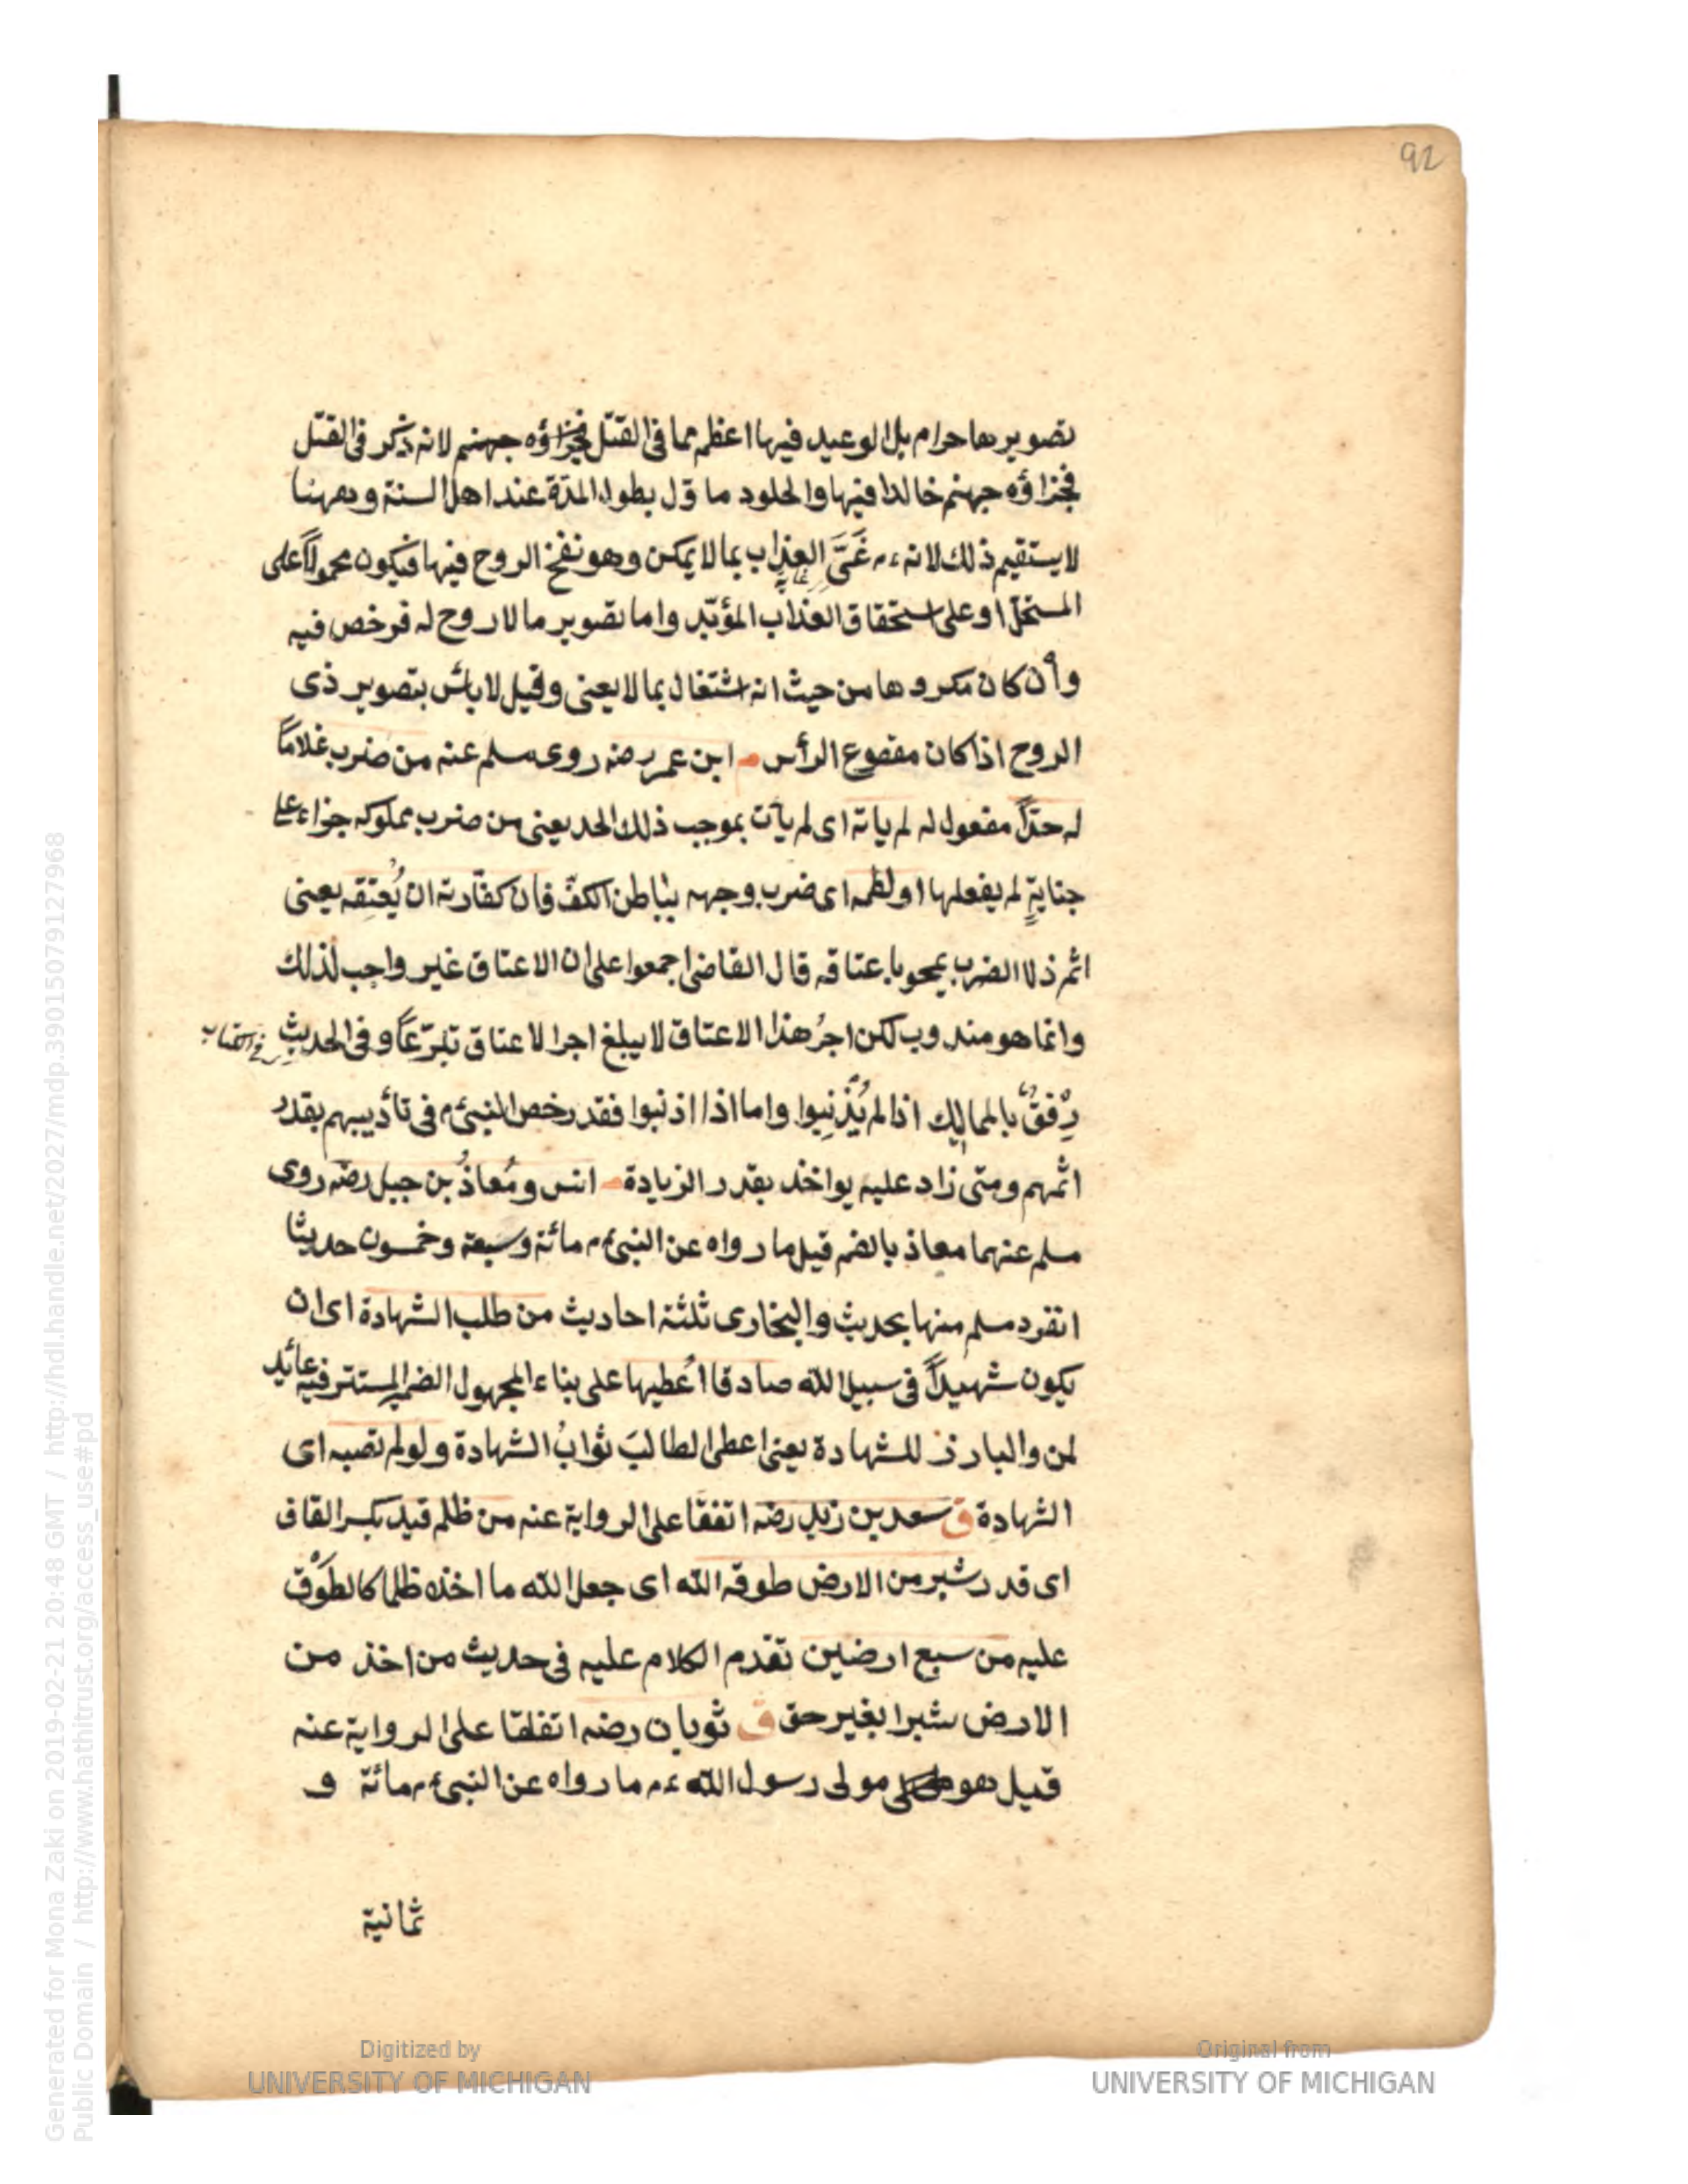 92
تصويرها حرام بل الوعيد فيها اعظم مما في القتل فجزاؤه جهنم لانه ذكر في القتل
فجزاؤه جهنم خالدا فيها والخلود ماؤل بطول المدة عند اهل السنة وههنا
لا يستقيم ذلك لانه ءم غَيَّ العذاب بما لا يمكن وهو نفخ الروح فيها فيكون محمولاً على
المستحل او على استحقاق العذاب المؤبّد واما تصوير ما لا روح له فرخص فيه
وان كان مكروها من حيث انه اشتغال بما لا يعنى وقيل لا بأس بتصوير ذى
الروح اذا كان مقصوع الرأس م ابن عمر رضه روى مسلم عنه من ضرب غلاماً
له حدّاً مفعول له لم ياته اى لم يأت بموجب ذلك الحد يعنى من ضرب مملوكه جزاء على
جنايةٍ لم يفعلها او لطمه اى ضرب وجهه بباطن الكفّ فان كفّارته ان يُعتِقه يعنى
اثم ذلك الضرب يمحو باعتاقه قال القاضى اجمعوا على ان الاعتاق غير واجب لذلك
وانما هو مندوب لكن اجرُ هذا الاعتاق لا يبلغ اجر الاعتاق تبرّعاً وفى الحديث
رِفقٌ بالمماليك اذا لم يُذْنِبوا واما اذا اذنبوا فقد رخص النبىءم فى تأديبهم بقدر
اثمهم ومتى زاد عليه يواخذ بقدر الزيادة م انس ومُعاذُ بن جبل رضه روى
مسلم عنهما معاذ بالضم قيل ما رواه عن النبىءم مائة وسبعة وخمسون حديثا
انفرد مسلم منها بحديث والبخارى ثلثة احاديث من طلب الشهادة اى ان
يكون شهيداً فى سبيل الله صادقا اُعطيها على بناء المجهول الضمير المستتر فيه عائد
لمن والبارز للشهادة يعنى اعطى الطالبَ ثوابُ الشهادة ولو لم تصبه اى
الشهادة ق سعد بن زيد رضه اتفقا على الرواية عنه من ظلم قيد بكسر القاف
اى قدر شبر من الارض طوقه الله اى جعل الله ما اخذه ظلما كالطَوْق
عليه من سبع ارضين تقدم الكلام عليه فى حديث من اخذ من
الارض شبرا بغير حق ق ثوبان رضه اتفقا على الرواية عنه
قيل هو مولى رسول الله ءم ما رواه عن النبىءم مائة و
ثمانية
Generated for Mona Zaki on 2019-02-21 20:48 GMT / http://hdl.handle.net/2027/mdp.39015079127968
Public Domain / http://www.hathitrust.org/access_use#pd
Digitized by
UNIVERSITY OF MICHIGAN
Original from
UNIVERSITY OF MICHIGAN